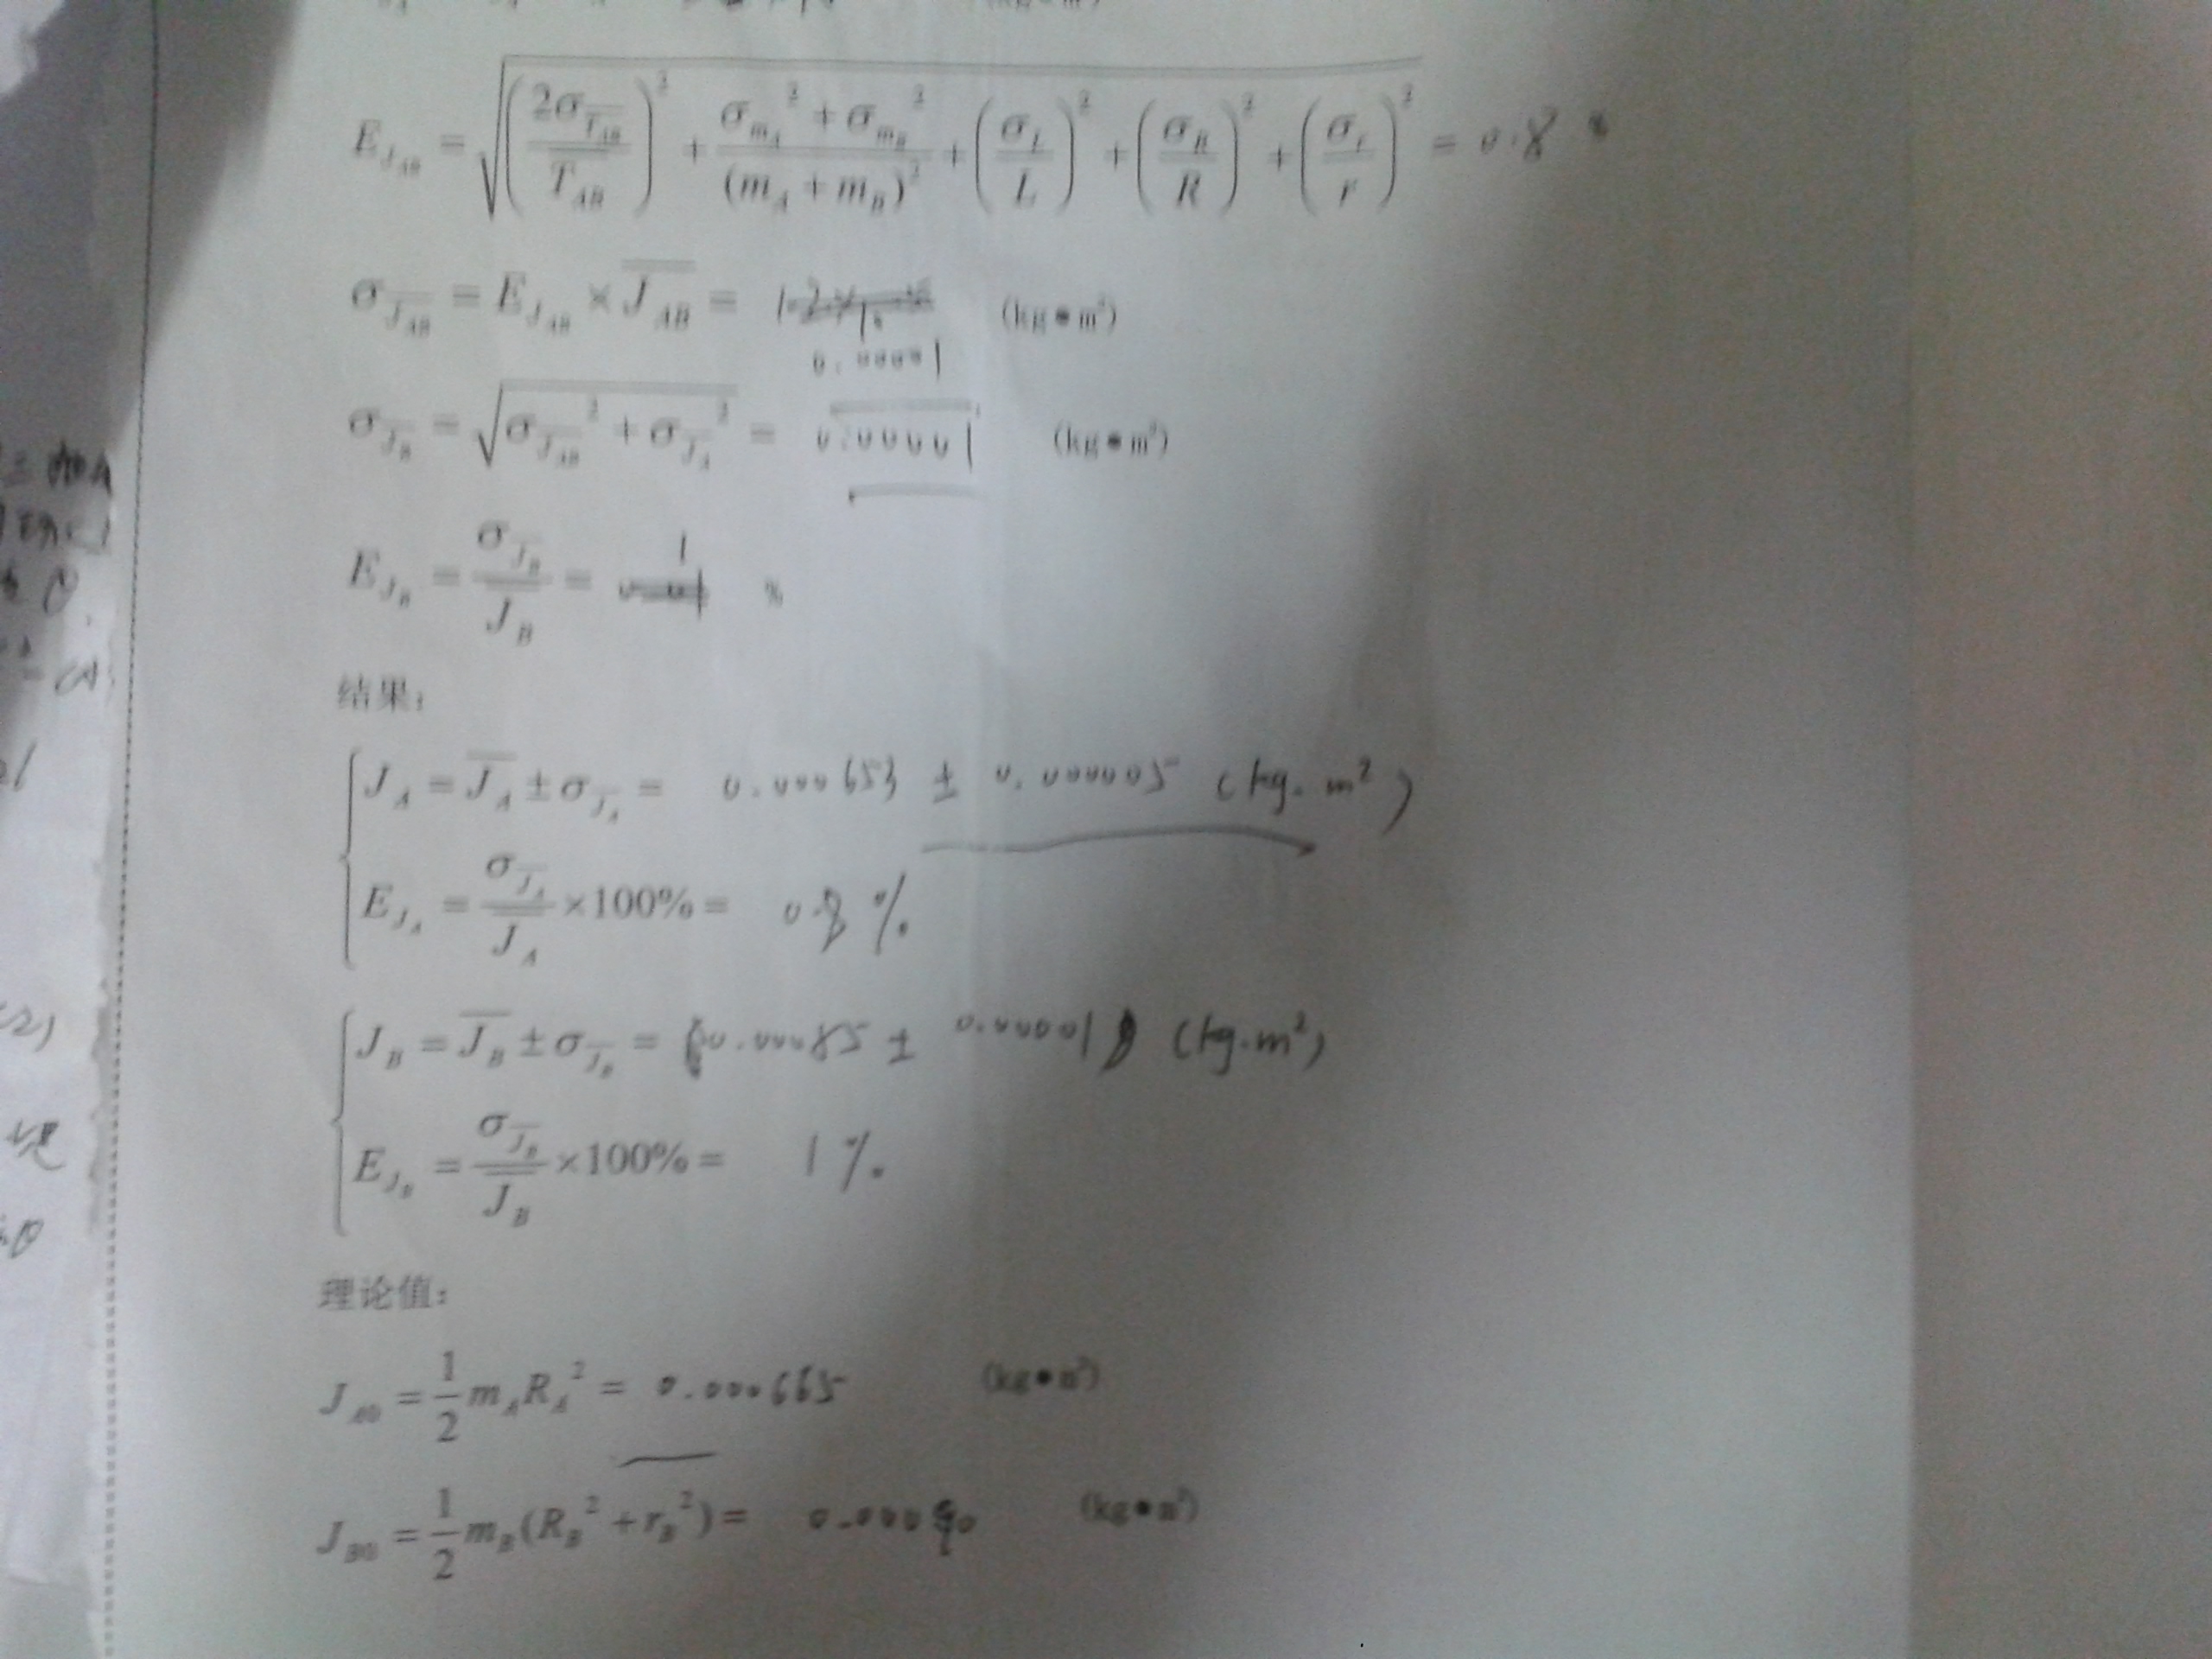 E_{J_{AB}} = √((2σ_{\overline{T_{AB}}} / \overline{T_{AB}})² + (σ_{m_A}² + σ_{m_B}²) / (m_A + m_B)² + (σ_L / L)² + (σ_R / R)² + (σ_r / r)²) = 0.8 %
σ_{\overline{J_{AB}}} = E_{J_{AB}} × \overline{J_{AB}} = (kg●m²)
0.00001
σ_{\overline{J_B}} = √(σ_{\overline{J_{AB}}}² + σ_{\overline{J_A}}²) = 0.00001 (kg●m²)
E_{J_B} = σ_{\overline{J_B}} / \overline{J_B} = 1 %
结果：
J_A = \overline{J_A} ± σ_{\overline{J_A}} = 0.000653 ± 0.000005 (kg.m²)
E_{J_A} = σ_{\overline{J_A}} / \overline{J_A} ×100% = 0.8 %
J_B = \overline{J_B} ± σ_{\overline{J_B}} = 0.00085 ± 0.00001 (kg.m²)
E_{J_B} = σ_{\overline{J_B}} / \overline{J_B} ×100% = 1 %
理论值：
J_{A0} = 1/2 m_A R_A² = 0.000665 (kg●m²)
J_{B0} = 1/2 m_B (R_B² + r_B²) = 0.00090 (kg●m²)